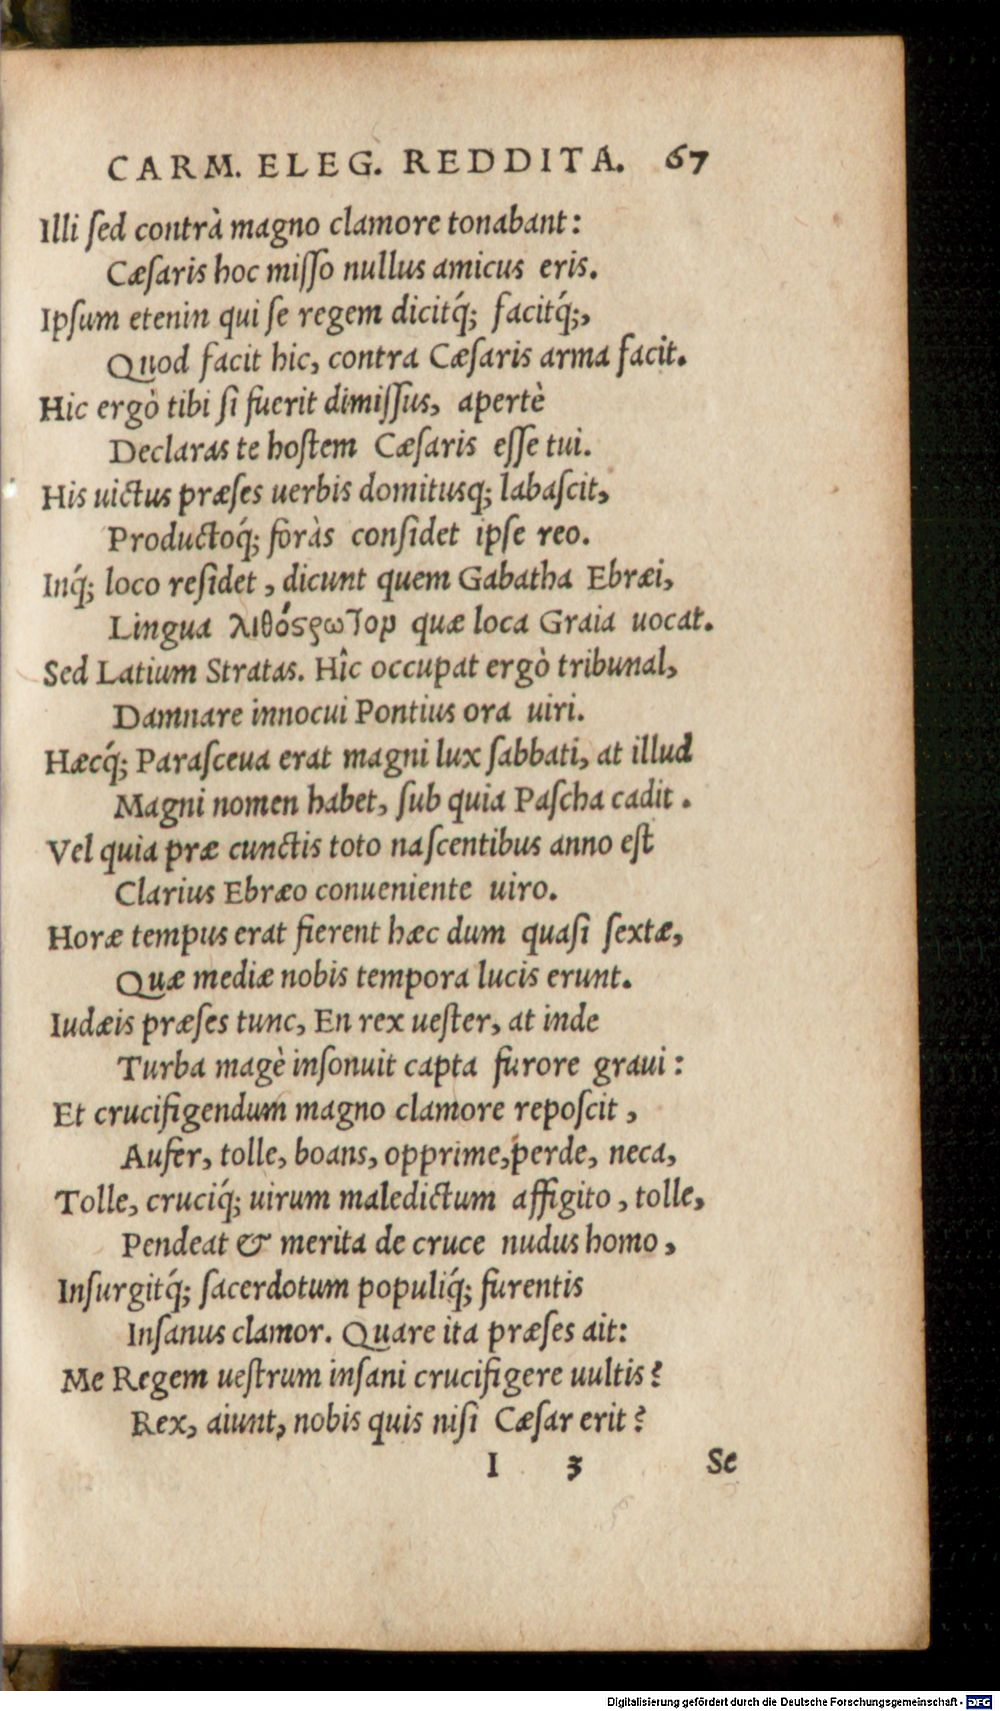 CARM. ELEG. REDDITA. 67
Illi ſed contrà magno clamore tonabant:
Cæſaris hoc miſſo nullus amicus eris.
Ipſum etenin qui ſe regem dicitq́; facitq́;,
Quod facit hic, contra Cæſaris arma facit.
Hic ergò tibi ſi fuerit dimiſſus, apertè
Declaras te hoſtem Cæſaris eſſe tui.
His uictus præſes uerbis domitusq; labaſcit,
Productoq́; foràs conſidet ipſe reo.
Inq́; loco reſidet, dicunt quem Gabatha Ebræi,
Lingua λιθόςρωτορ quæ loca Graia uocat.
Sed Latium Stratas. Hîc occupat ergò tribunal,
Damnare innocui Pontius ora uiri.
Hæcq́; Paraſceua erat magni lux ſabbati, at illud
Magni nomen habet, ſub quia Paſcha cadit.
Vel quia præ cunctis toto naſcentibus anno eſt
Clarius Ebræo conueniente uiro.
Horæ tempus erat fierent hæc dum quaſi ſextæ,
Quæ mediæ nobis tempora lucis erunt.
Iudæis præſes tunc, En rex ueſter, at inde
Turba magè inſonuit capta furore graui:
Et crucifigendum magno clamore repoſcit,
Aufer, tolle, boans, opprime, perde, neca,
Tolle, cruciq́; uirum maledictum affigito, tolle,
Pendeat & merita de cruce nudus homo,
Inſurgitq́; ſacerdotum populiq́; furentis
Inſanus clamor. Quare ita præſes ait:
Me Regem ueſtrum inſani crucifigere uultis?
Rex, aiunt, nobis quis niſi Cæſar erit?
I 3 Se
Digitalisierung gefördert durch die Deutsche Forschungsgemeinschaft - DFG